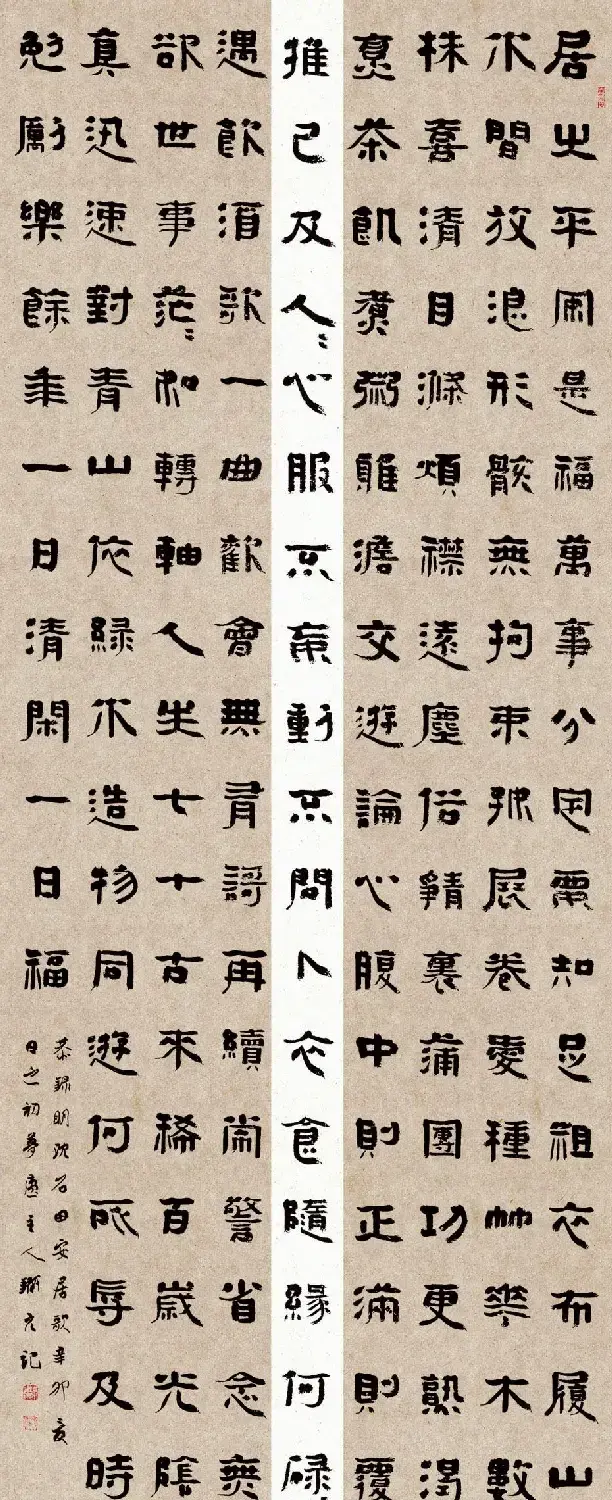 居之平安是福萬事分定要知足粗衣布履山
水間放浪形骸無拘束展卷愛種竹花木數
株喜清目滌煩襟遠塵俗靜裏蒲團功更熟渴
烹茶飢煮粥雖澹交遊論心腹中則正滿則覆
推己及人〻心服不妄動不問卜衣食隨緣何碌
遇飲酒歌一曲歡會無謌再續常警省念無
欲世事茫〻如轉軸人生七十古來稀百歲光陰
真迅速對青山依綠水造物同遊何辱及時
勉勵樂餘年一日清閑一日福
恭錄明沈石田安居歌辛卯亥
日之初夢廬主人記